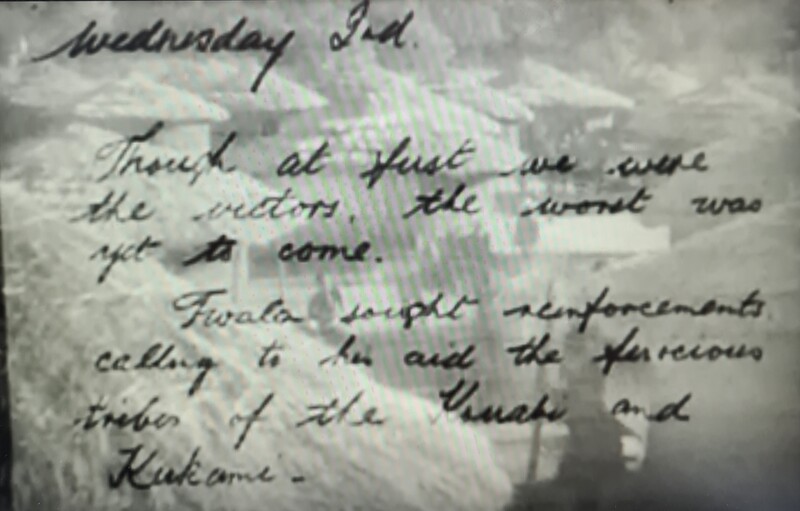 Wednesday 2nd.
Though at first we were
the victors, the worst was
yet to come.
Twala sought reinforcements,
calling to his aid the ferocious
tribes of the and
Kukami -